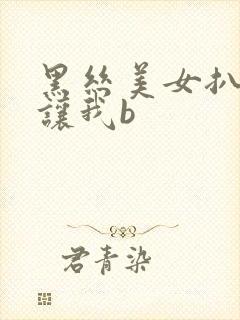 黑丝美女扒
讓我b
君青染